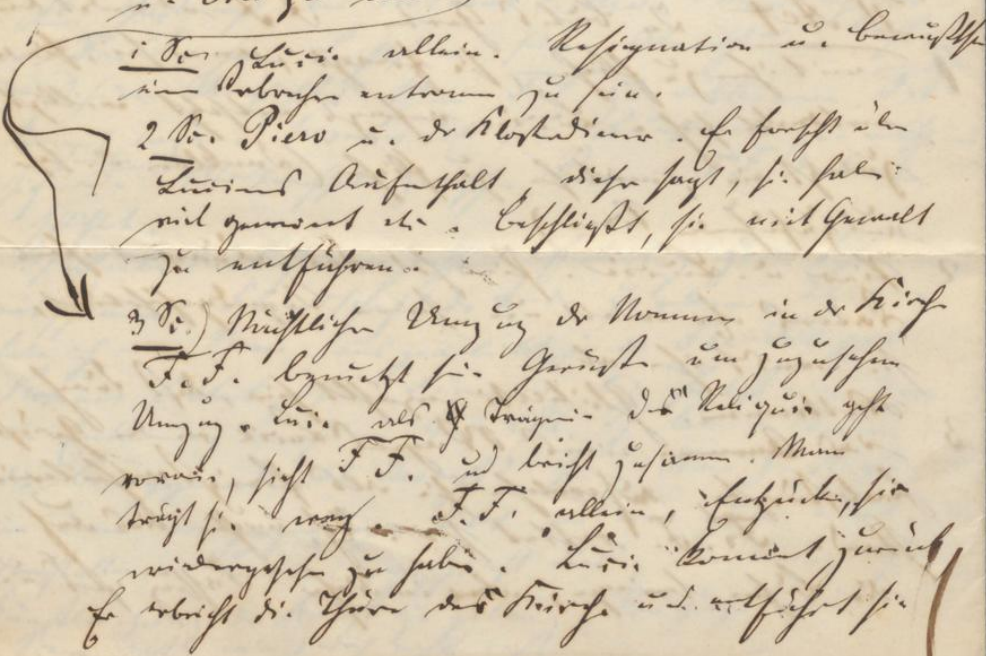 1 Sc. Lucia allein. Resignation u. Bewußtsein
einem Verbrechen entronnen zu sein.
2 Sc. Piero u. der Klosterdiener. Er forscht über
Lucias Aufenthalt, dieser sagt, sie habe
viel geweint etc. Beschließt, sie mit Gewalt
zu entführen.
3 Sc.) Nächtlicher Umzug der Nonnen in der Kirche
F. F. benutzt Gerüste um zuzusehen
Umzug. Lucia als Trägerin der Reliquie geht
voraus, sieht F F. und bricht zusammen. Man
trägt sie weg. F. F. allein, Entzücken, sie
wiedergesehen zu haben. Lucia kommt zurück
Er erbricht die Thüre der Kirche und entführt sie